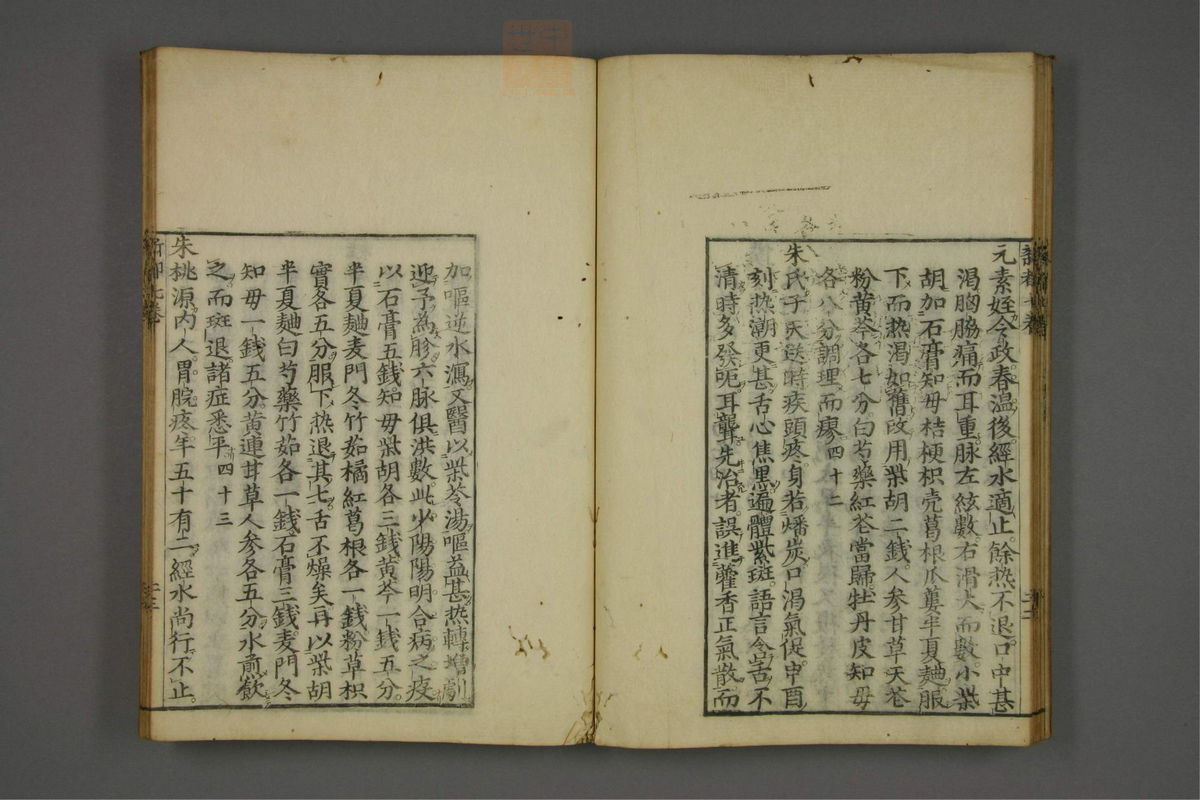 元素姪令政春温後經水適止餘热不退口中甚
渴胸脇痛而耳重脉左絃數右滑大而數小柴
胡加石膏知毋桔梗枳壳葛根瓜蔞半夏麯服
下而热渴如舊改用柴胡二錢人参甘草天花
粉黄芩各七分白芍藥紅花當歸牡丹皮知毋
各八分調理而瘳四十二
朱氏子天送時疾頭疼身若燔炭口渴氣促申酉
刻热潮更甚舌心焦黒遍體紫斑語言
清時多發呃耳聾先治者誤進藿香正氣散而
加嘔逆水瀉又醫以柴苓湯嘔益甚热轉增劇
迎予為胗六脉俱洪數此少陽陽明合病之疫
以石膏五錢知毋柴胡各三錢黄芩一錢五分
半夏麯麦門冬竹茹橘紅葛根各一錢粉草枳
實各五分服下热退其七舌不燥矣再以柴胡
半夏麯白芍藥竹茹各一錢石膏三錢麦門冬
知毋一錢五分黄連甘草人参各五分水煎飲
之而斑退諸症悉平四十三
朱桃源内人胃脘疼年五十有二經水尚行不止